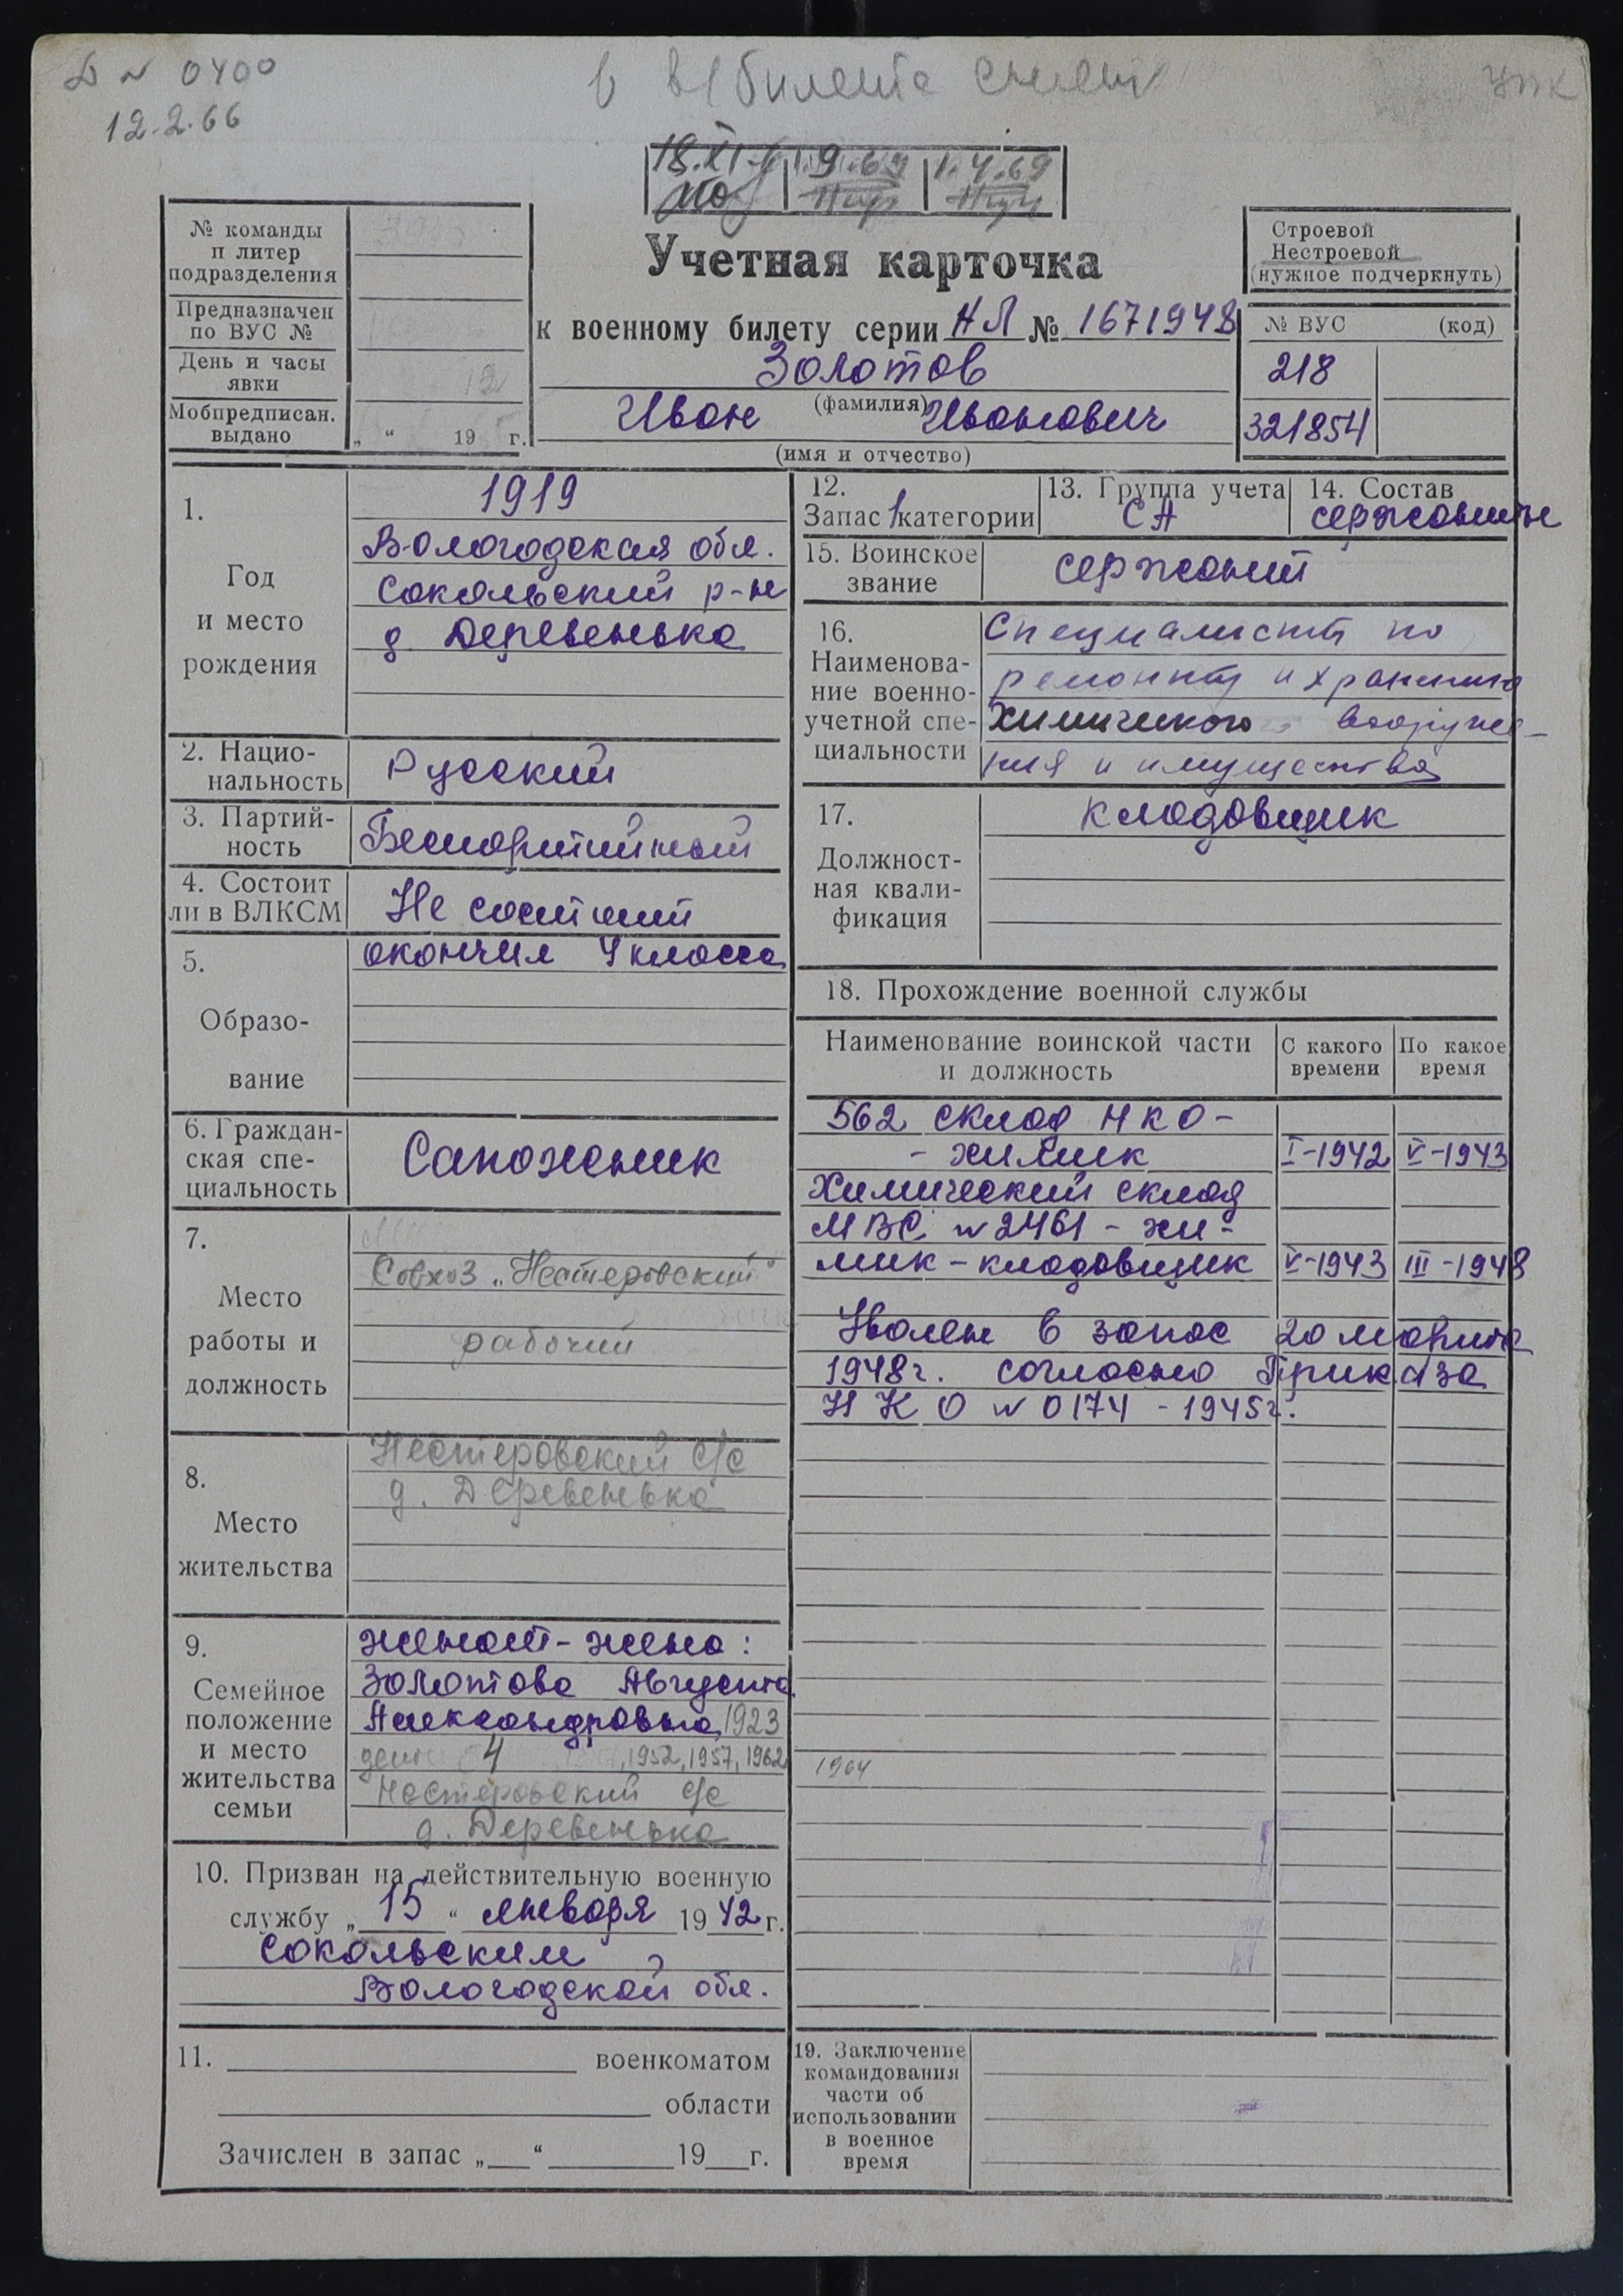 Д № 0400
12.2.66
в в/билете
18.XI.
1.9.69
1.4.69
№ команды
и литер
подразделения
Предназначен
по ВУС №
День и часы
явки
Мобпредписан.
выдано
„ “ 19 г.
Учетная карточка
к военному билету серии НЛ № 1671948
Золотов
(фамилия)
Иван Иванович
(имя и отчество)
Строевой
Нестроевой
(нужное подчеркнуть)
№ ВУС (код)
218
321854
1.
Год
и место
рождения
1919
Вологодская обл.
Сокольский р-н
д. Деревенька
2. Нацио-
нальность
Русский
3. Партий-
ность
Беспартийный
4. Состоит
ли в ВЛКСМ
Не состоит
5.
Образо-
вание
окончил 4 класса
6. Граждан-
ская спе-
циальность
Сапожник
7.
Место
работы и
должность
Совхоз „Нестеровский“
рабочий
8.
Место
жительства
Нестеровский с/с
д. Деревенька
9.
Семейное
положение
и место
жительства
семьи
женат - жена:
Золотова Августа
Александровна 1923
дети 4 , 1952, 1957, 1962
1964
Нестеровский с/с
д. Деревенька
10. Призван на действительную военную
службу „ 15 “ января 19 42 г.
Сокольским
Вологодской обл.
11. военкоматом
области
Зачислен в запас „ “ 19 г.
12.
Запас 1 категории
13. Группа учета
СА
14. Состав
сержанты
15. Воинское
звание
сержант
16.
Наименова-
ние военно-
учетной спе-
циальности
Специалист по
ремонту и хранению
химического вооруже-
ния и имущества
17.
Должност-
ная квали-
фикация
кладовщик
18. Прохождение военной службы
Наименование воинской части
и должность
С какого
времени
По какое
время
562 склад НКО -
- химик I-1942 V-1943
Химический склад
МВС № 2461 - хи-
мик - кладовщик V-1943 III-1948
Уволен в запас 20 марта
1948г. согласно Приказа
НКО № 0174 - 1945г.
19. Заключение
командования
части об
использовании
в военное
время